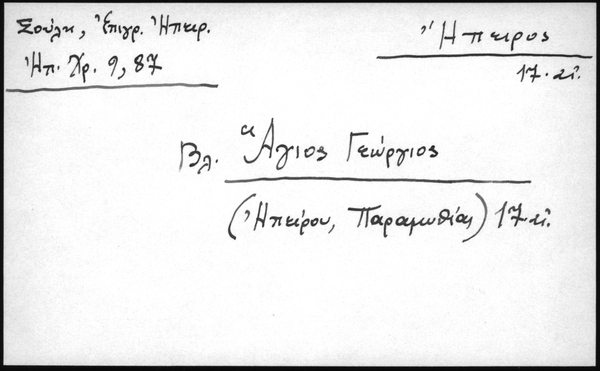 Σούλη, Ἐπιγρ. Ἠπειρ.
Ἠπ. Χρ. 9, 87
Ἤπειρος
17. αἰ.
Βλ. Ἅγιος Γεώργιος
(Ἠπείρου, Παραμυθίας) 17. αἰ.